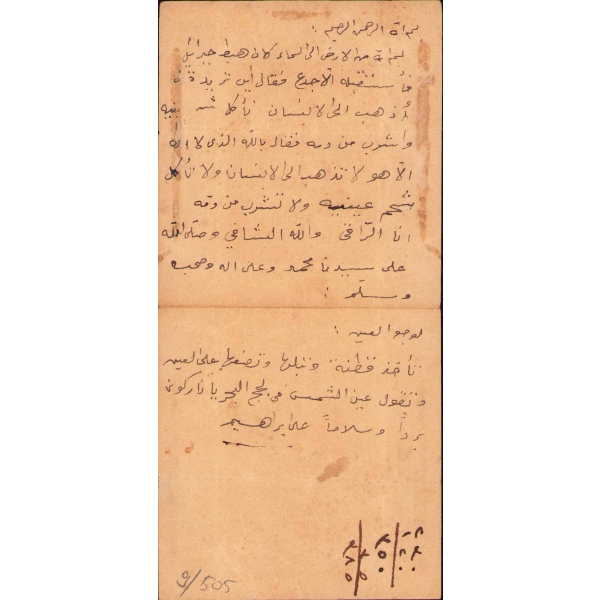 بسم الله الرحمن الرحيم :
بسم الله من الارض الى السماء كان هبط جبرائيل
فأستقبله الاجدع فقال اين تريد قال
أذهب الى الانسان نأكل شحم عينيه
واشرب من دمه فقال بالله الذي لا اله
الّا هو لا تذهب الى الانسان ولا تأكل
شحم عينيه ولا تشرب من دمه
انا الرّاقي والله الشافي وصلى الله
على سيدنا محمد وعلى اله وصحبه
وسلّم :
لوجع العين :
تأخذ قطنة وتبلها وتضعها على العين
وتقول عين الشمس في لجج البحر يا نار كوني
برداً وسلاماً على ابراهيم
9/505